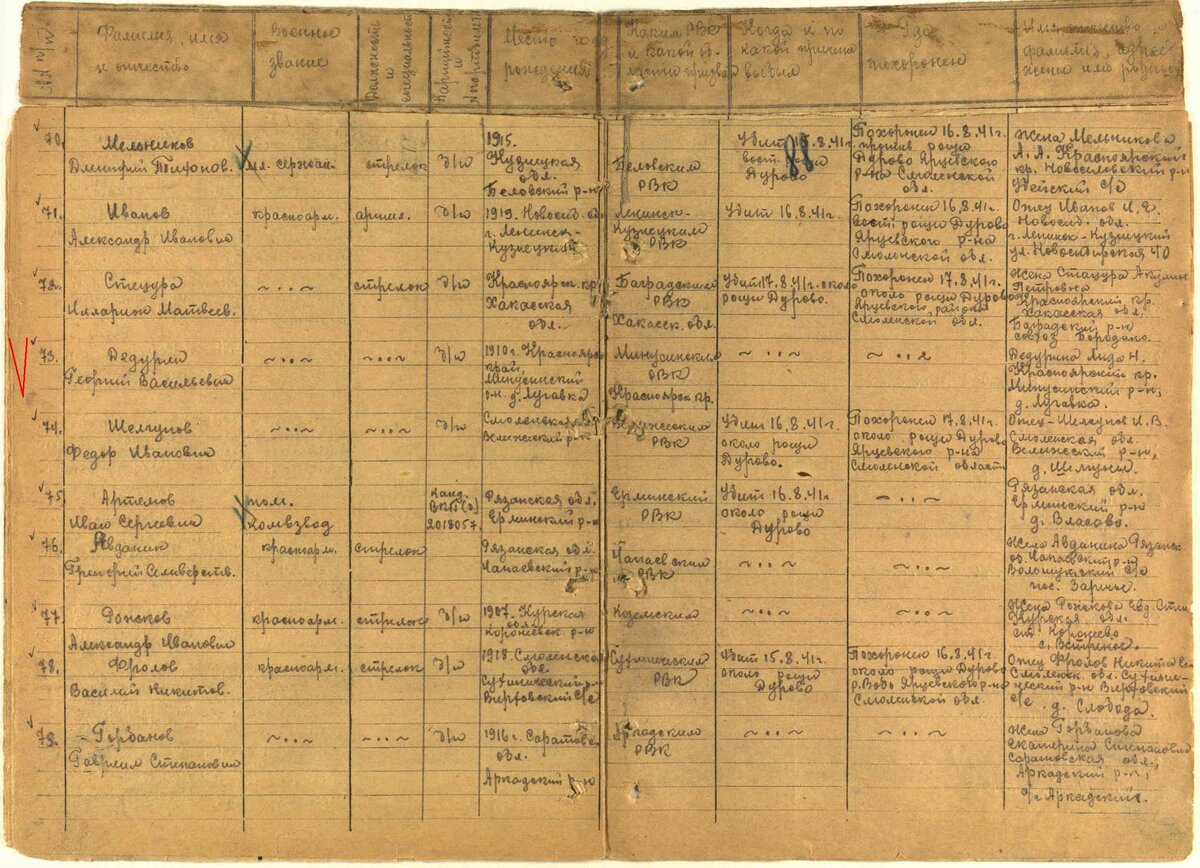 №№ п/п
Фамилия, имя и отчество
Военное звание
Должность и специальность
Партийность
Место и год рождения
Каким РВК и какой области призван
Когда и по какой причине выбыл
Где похоронен
Имя, отчество, фамилия, адрес жены или
70.
Мельников
Дмитрий Тихонов.
мл. сержант
стрелок
б/п
1915.
Кузнецкая
обл.
Беловский р-н
Беловским
РВК
Убит 15.8.41
вост. рощи
Дурово
88
Похоронен 16.8.41г.
против рощи
Дурово Ярцевского
р-на Смоленской
обл.
Жена Мельникова
А. А. Красноярский
кр. Новоселовский р-н
с/с
71.
Иванов
Александр Иванович
красноарм.
б/п
1919. Новосиб. об
г. Ленинск-
Кузнецкий
Ленинск-
Кузнецким
РВК
Убит 16.8.41г.
Похоронен 16.8.41г
вост. рощи Дурово
Ярцевского р-на
Смоленской обл.
Отец Иванов И. Е.
Новосиб. обл.
г. Ленинск-Кузнецкий
ул. Новосибирская 40
72.
Стецура
Илларион Матвеев.
~ .. ~
стрелок
б/п
Красноярск. кр.
Хакасская
обл.
Боградским
РВК
Хакасск. обл.
Убит 17.8.41г. около
рощи Дурово.
Похоронен 17.8.41г.
около рощи Дурово
Ярцевского района
Смоленской обл.
Жена Стацура Акулина
Петровна
Красноярский кр.
Хакасская обл.
Боградский р-н
совхоз Бородино.
73.
Дедурин
Георгий Васильевич
~ .. ~
~ .. ~
б/п
1910г. Красноярск
край,
Минусинский
д. Лугавка
Минусинским
РВК
Красноярск кр.
~ .. ~
~ .. ~
Дедурина Лида Н.
Красноярский кр.
Минусинский р-н,
д. Лугавка.
74.
Шелгунов
Федор Иванович
~ .. ~
~ .. ~
б/п
Смоленская
р-н
РВК
Убит 16.8.41г.
около рощи
Дурово.
Похоронен 17.8.41г
около рощи Дурово
Ярцевского р-на
Смоленской области
Отец-Шелгунов И. В.
Смоленская обл.
р-н,
д.
75.
Артемов
Иван Сергеевич
пом.
комвзвод
канд.
ВКП(б)
2018057.
Рязанская обл.
Ерминский р-н
Ерминский
РВК
Убит 16.8.41г
около рощи
Дурово
~ .. ~
Рязанская обл.
Ерминский р-н
д. Власово.
76.
Авданин
Григорий Селиверств.
красноарм.
стрелок
Рязанская обл.
Чапаевский р-н
Чапаевский
РВК
~ .. ~
~ .. ~
Жена Авданина Рязанск
об. Чапаевский р-н
с/с
пос. Заречье.
77
Рожков
Александр Иванович
красноарм.
стрелок
б/п
1907. Курская
обл.
р-н
Коземским
~ .. ~
~ .. ~
Жена Рожкова
Курская обл.
78.
Фролов
Василий Никитов.
красноарм.
стрелок
б/п
1918. Смоленская
обл.
Сухинический
Вертовский с/с
Сухинический
РВК
Убит 15.8.41г.
около рощи
Дурово
Похоронен 16.8.41г
около рощи Дурово
р. Водь Ярцевского р-на
Смоленской обл.
Отец Фролов Никита
Смоленск. обл. Сухини-
ческий р-н Вертовский
с/с д. Слобода.
79.
Горбанов
Гаврил Степанович
~ .. ~
~ .. ~
б/п
1916г. Саратовс
обл.
Аркадский р-н
Аркадским
РВК
~ .. ~
~ .. ~
Жена Горбанова
Екатерина Степановна
Саратовская обл.,
Аркадский р-н,
с. Аркадский.